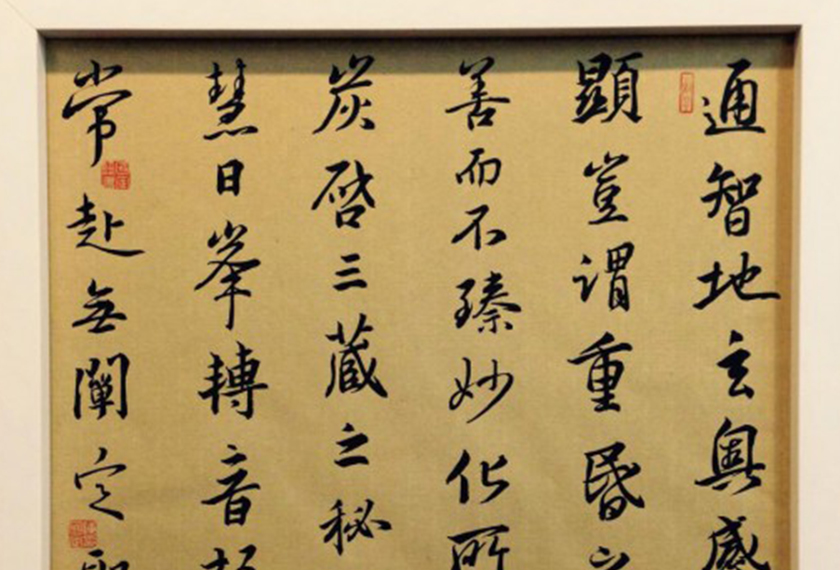 通智地玄奧感
顯豈謂重昏之
善而不臻妙化所
炭啓三藏之秘
慧日峯轉音
常赴無闡定